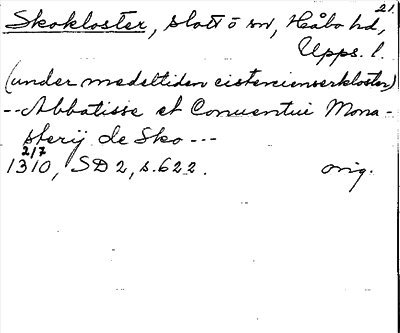 21
Skokloster, slott o sn, Håbo hd,
Upps. l.
(under medeltiden cistercienserkloster)
-- Abbatisse et Conuentui Mona-
sterij de Sko ---
2/7
1310, SD 2, s. 622. orig.